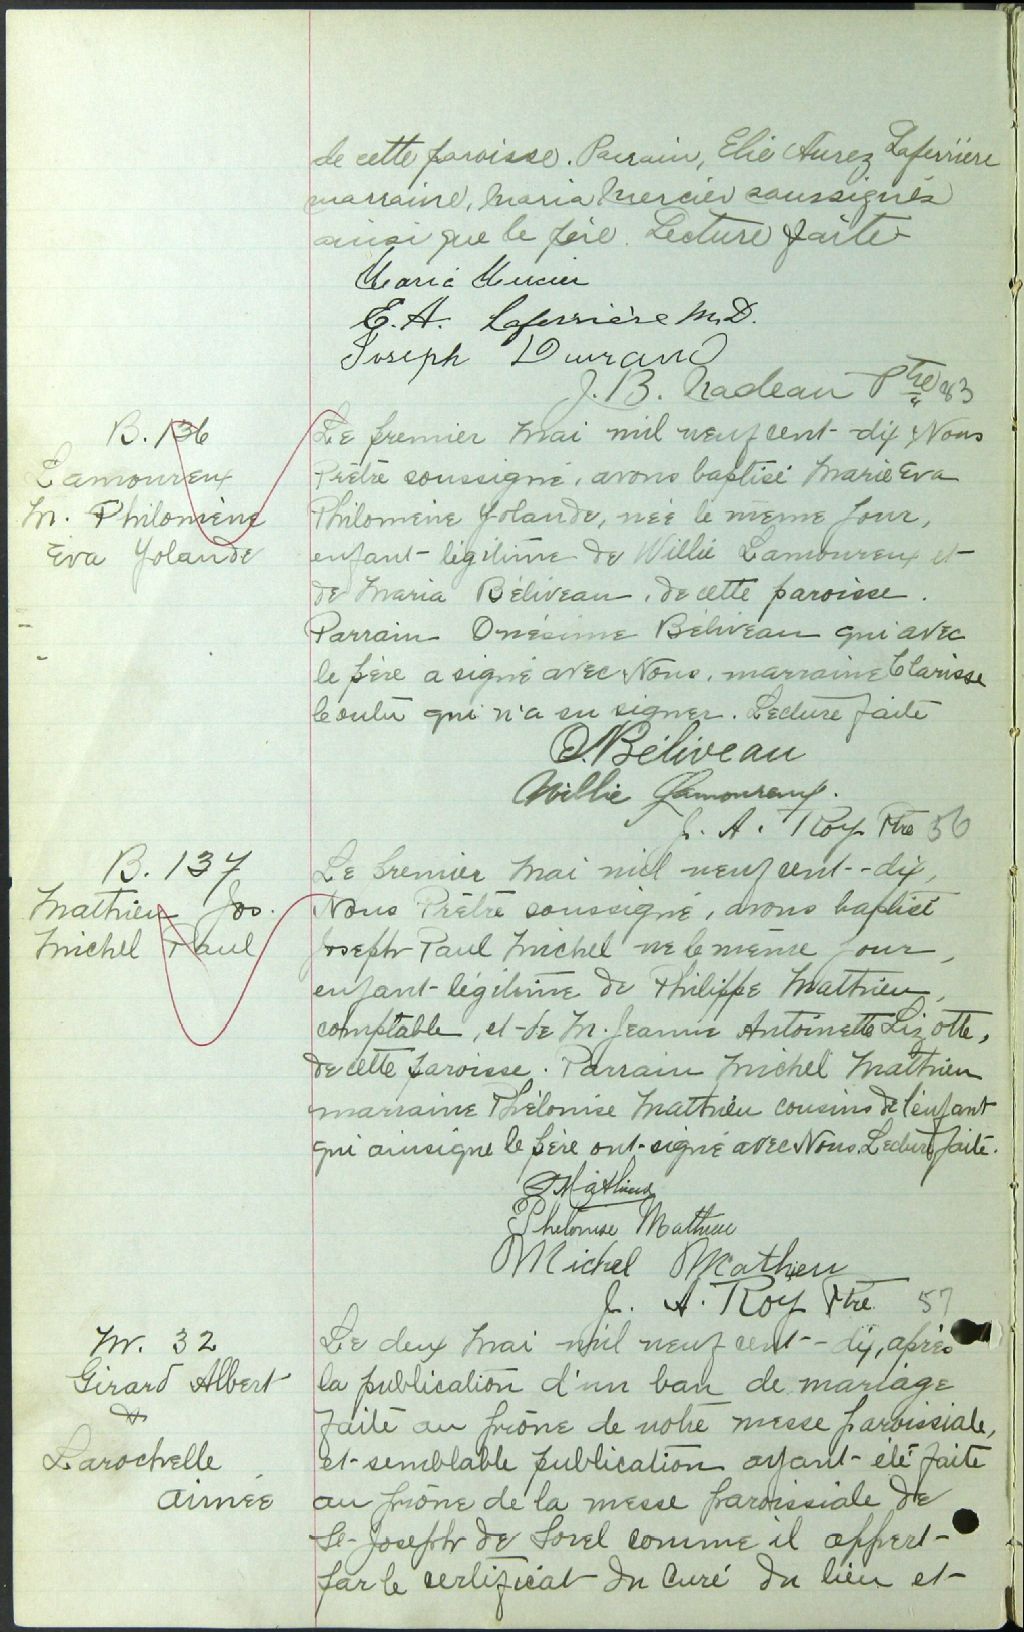 de cette paroisse. Parrain, Elie Aurez Laferrière
marraine, Maria Mercier soussignés
ainsi que le père. Lecture faite
Maria Mercier
E. A. Laferrière M.D.
Joseph Durand
J. B. Nadeau Ptre 83
B. 136
Lamoureux
M. Philomène
Eva Yolande
Le premier Mai mil neuf cent-dix Nous
Prêtre soussigné, avons baptisé Marie Eva
Philomène Yolande, née le même jour,
enfant légitime de Willie Lamoureux et
de Maria Béliveau, de cette paroisse.
Parrain Onésime Béliveau qui avec
le père a signé avec Nous, marraine Clarisse
qui n'a su signer. Lecture faite
O. Béliveau
Willie Lamoureux.
J. A. Roy Ptre 56
B. 137
Mathieu Jos.
Michel Paul
Le premier Mai mil neuf cent-dix,
Nous Prêtre soussigné, avons baptisé
Joseph Paul Michel né le même jour,
enfant légitime de Philippe Mathieu,
comptable, et de M. Jeanne Antoinette Lizotte,
de cette paroisse. Parrain Michel Mathieu
marraine Phélonise Mathieu cousins de l'enfant
qui ainsi que le père ont signé avec Nous. Lecture faite.
P Mathieu
Phelonise Mathieu
Michel Mathieu
J. A. Roy Ptre 57
M. 32
Girard Albert
&
Larochelle
Aimée
Le deux Mai mil neuf cent-dix, après
la publication d'un ban de mariage
faite au prône de notre messe paroissiale,
et semblable publication ayant été faite
au prône de la messe paroissiale de
St-Joseph de Sorel comme il appert
par le certificat du Curé du lieu et